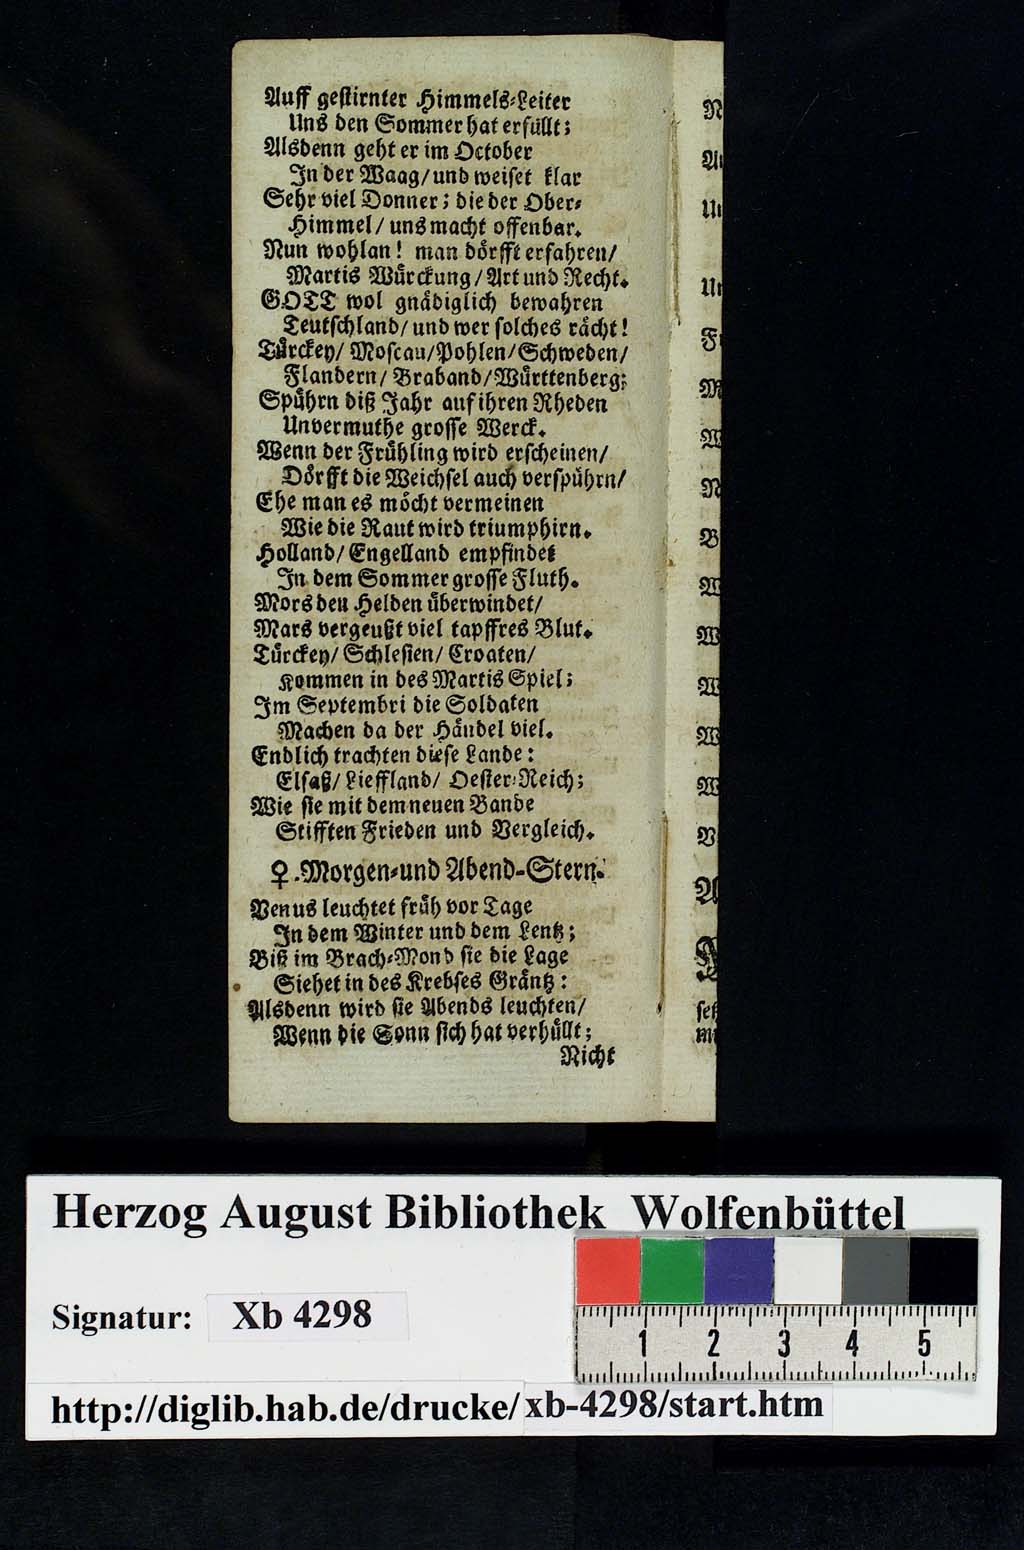 Auff gestirnter Himmels-Leiter
Uns den Sommer hat erfüllt;
Alsdenn geht er im October
In der Waag/ und weiset klar
Sehr viel Donner; die der Ober-
Himmel/ uns macht offenbar.
Nun wohlan! man dörfft erfahren/
Martis Würckung/ Art und Recht.
GOTT wol gnädiglich bewahren
Teutschland/ und wer solches rächt!
Türckey/ Moscau/ Pohlen/ Schweden/
Flandern/ Braband/ Württenberg;
Spührn diß Jahr auf ihren Rheden
Unvermuthe grosse Werck.
Wenn der Frühling wird erscheinen/
Dörfft die Weichsel auch verspührn/
Ehe man es möcht vermeinen
Wie die Raut wird triumphirn.
Holland/ Engelland empfindet
In dem Sommer grosse Fluth.
Mors den Helden überwindet/
Mars vergeußt viel tapffres Blut.
Türckey/ Schlesien/ Croaten/
Kommen in des Martis Spiel;
Im Septembri die Soldaten
Machen da der Händel viel.
Endlich trachten diese Lande:
Elsaß/ Lieffland/ Oester-Reich;
Wie sie mit dem neuen Bande
Stifften Frieden und Vergleich.
♀. Morgen-und Abend-Stern.
Venus leuchtet früh vor Tage
In dem Winter und dem Lentz;
Biß im Brach-Mond sie die Lage
Siehet in des Krebses Gräntz:
Alsdenn wird sie Abends leuchten/
Wenn die Sonn sich hat verhüllt;
Nicht
Herzog August Bibliothek Wolfenbüttel
Signatur: Xb 4298
1 2 3 4 5
http://diglib.hab.de/drucke/xb-4298/start.htm